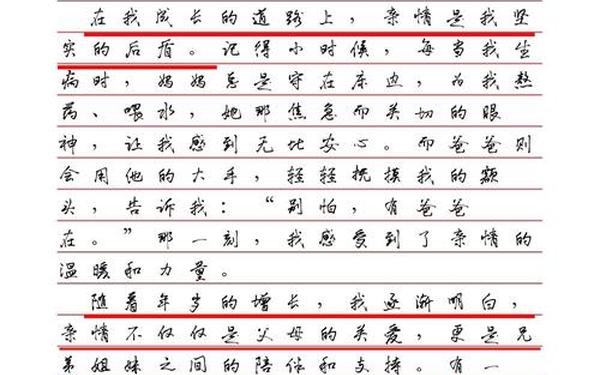 在我成长的道路上，亲情是我坚
实的后盾。记得小时候，每当我生
病时，妈妈总是守在床边，为我熬
药、喂水，她那焦急而关切的眼
神，让我感到无比安心。而爸爸则
会用他的大手，轻轻抚摸我的额
头，告诉我：“别怕，有爸爸
在。”那一刻，我感受到了亲情的
温暖和力量。
随着年岁的增长，我逐渐明白，
亲情不仅仅是父母的关爱，更是兄
弟姐妹之间的陪伴和支持。有一